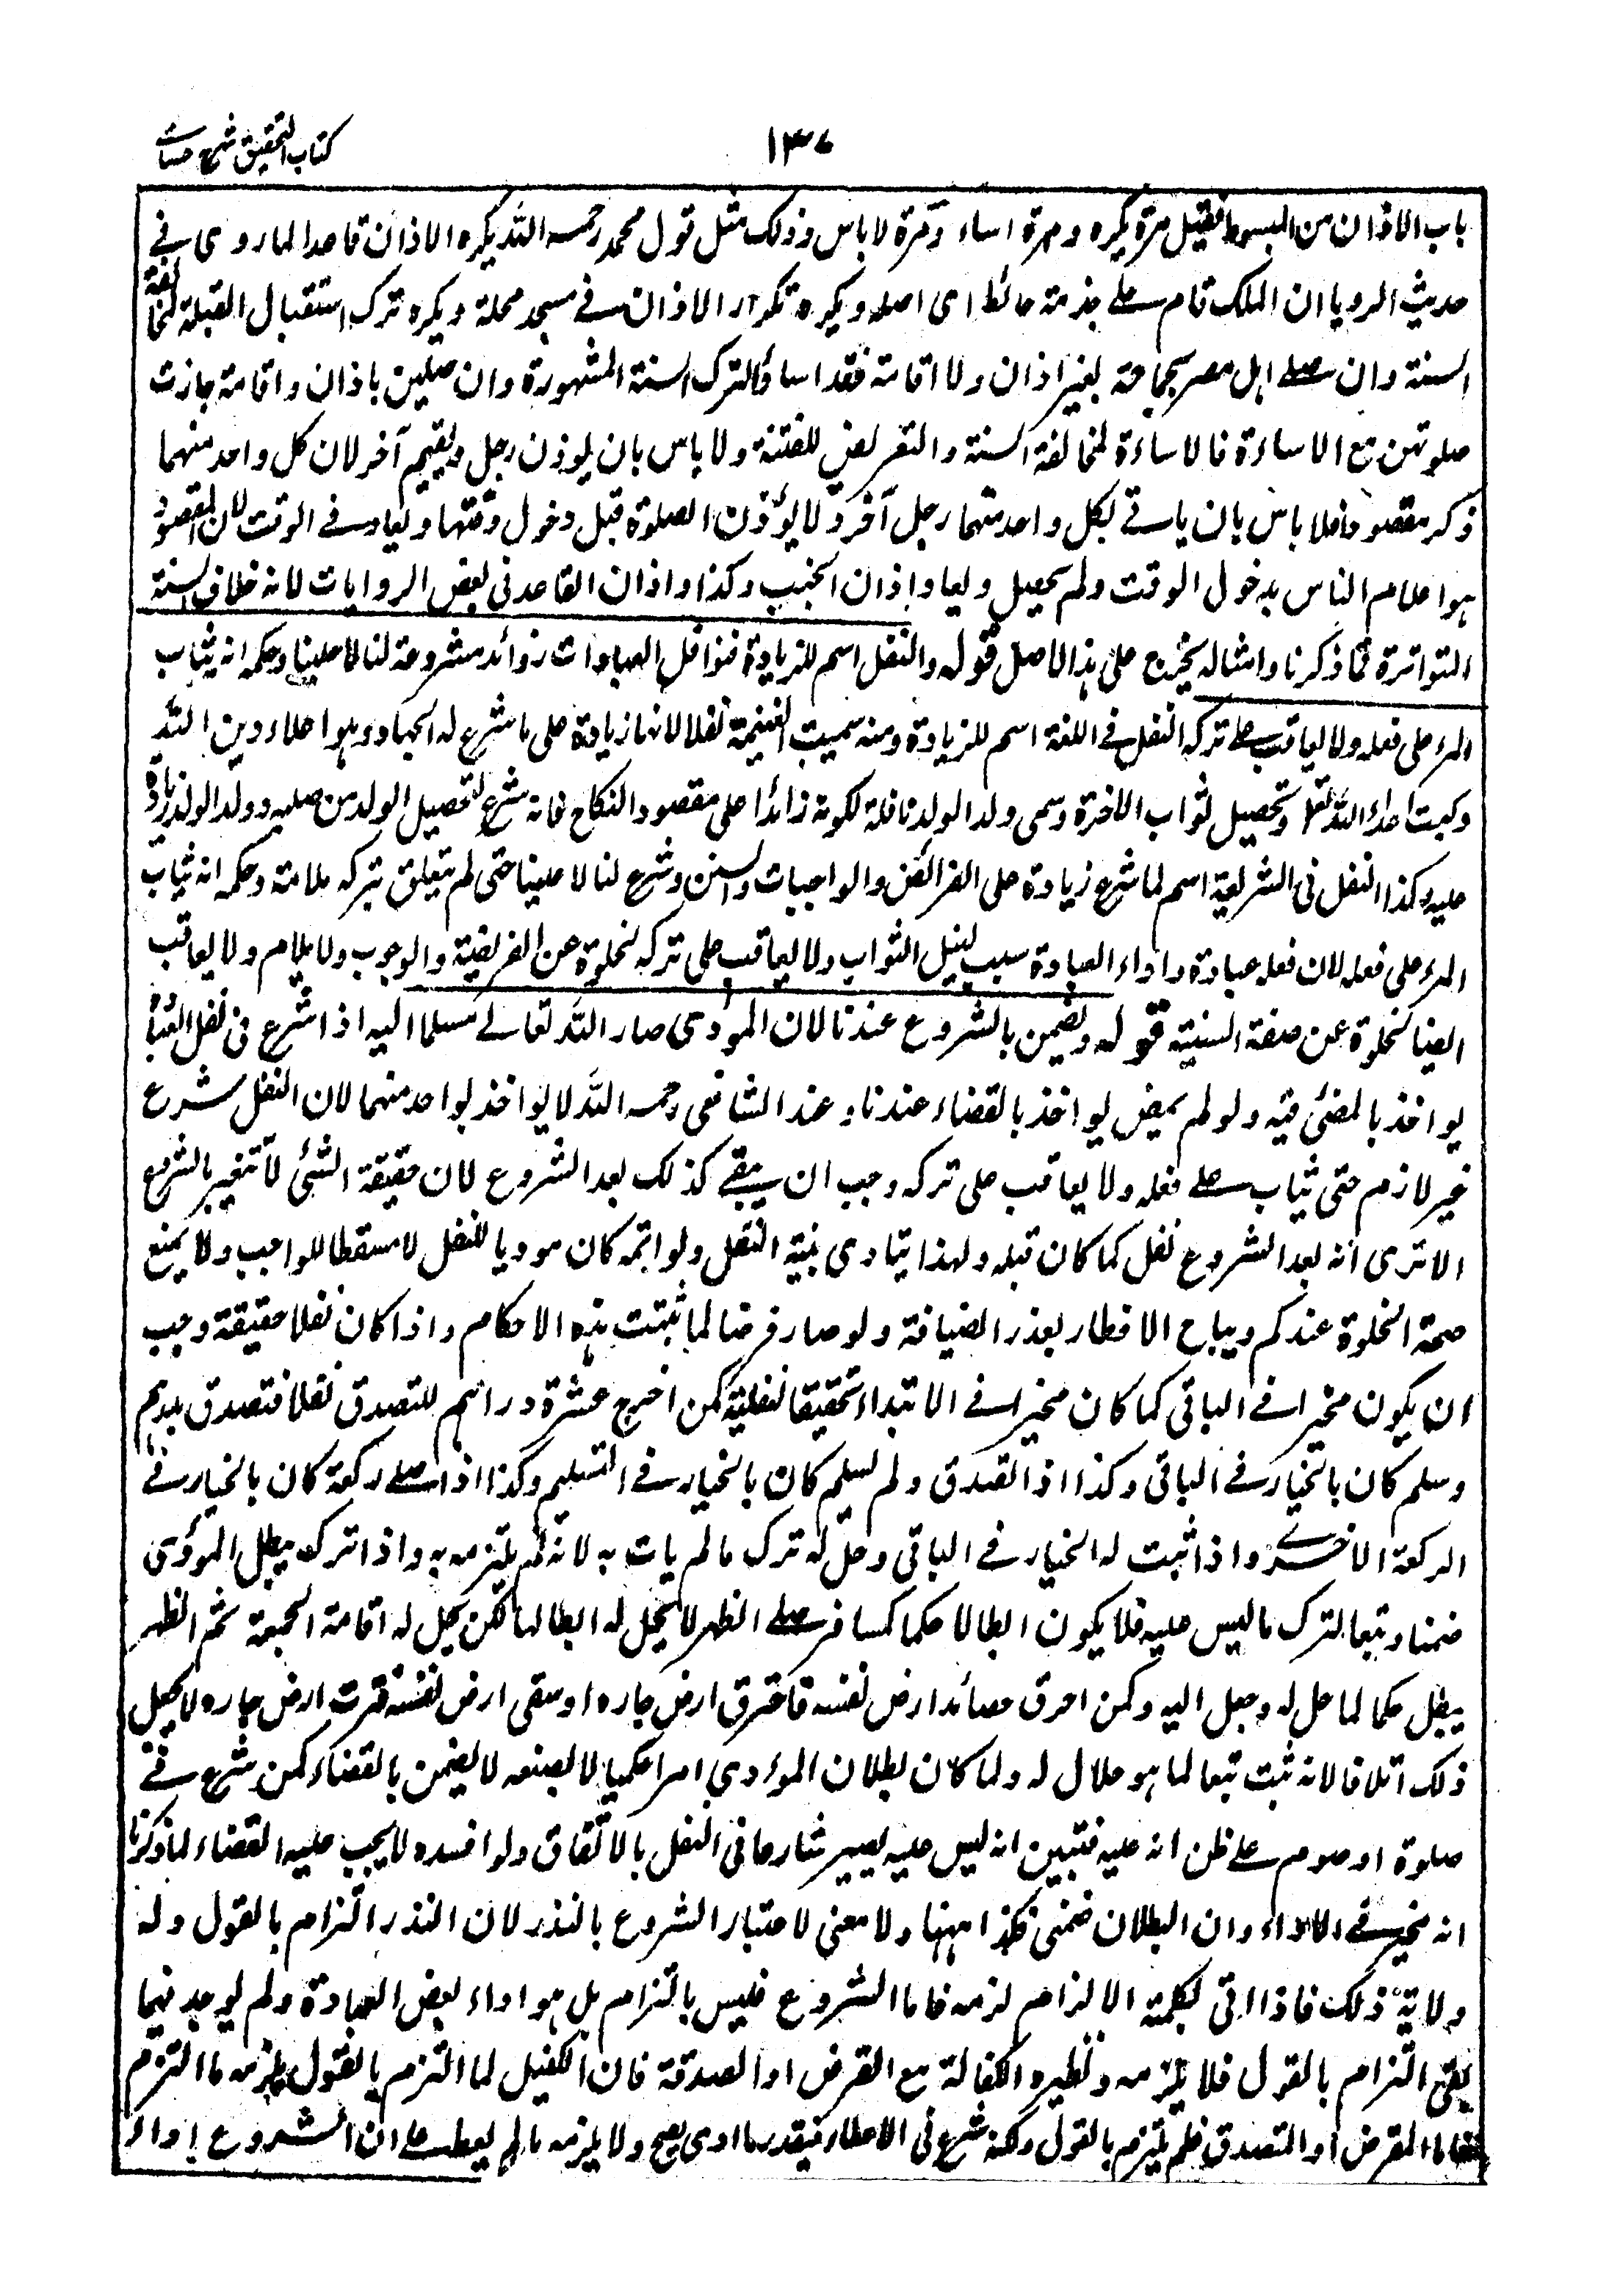 كتاب التحقيق شرح حسامى
١٣٧
باب الاذان من المبسوط فقيل مرة يكره ومرة اساء ومرة لا باس وذلك مثل قول محمد رحمه الله يكره الاذان قاعدا لما روى فى
حديث الرويا ان الملك قام على جذمة حائط اى اصله ويكره تكرار الاذان فى مسجد محلة ويكره ترك استقبال القبلة لمخالفة
السنة وان صلى اهل مصر بجماعة بغير اذان ولا اقامة فقد اساؤا لترك السنة المشهورة وان صلين باذان واقامة جازت
صلوتهن مع الاساءة فالاساءة لمخالفة السنة والتعريض للفتنة ولا باس بان يوذن رجل ويقيم آخر لان كل واحد منهما
ذكر مقصود فلا باس بان ياتى لكل واحد منهما رجل آخر ولا يوذن الصلوة قبل دخول وقتها ويعاد فى الوقت لان المقصود
هو اعلام الناس بدخول الوقت ولم يحصل ويعاد اذان الجنب وكذا واذان القاعد فى بعض الروايات لانه خلاف السنة
المتواترة فما ذكرنا وامثاله يخرج على هذا الاصل قوله والنفل اسم للزيادة فنوافل العبادات زوائد مشروعة لنا لا علينا وحكمه انه يثاب
المرء على فعله ولا يعاقب على تركه النفل فى اللغة اسم للزيادة ومنه سميت الغنيمة نفلا لانها زيادة على ما شرع له الجهاد وهو اعلاء دين الله
وكبت اعداء الله تعالى وتحصيل ثواب الاخرة وسمى ولد الولد نافلة لكونه زائدا على مقصود النكاح فانه شرع لتحصيل الولد من صلبه وولد الولد زيادة
عليه وكذا النفل فى الشريعة اسم لما شرع زيادة على الفرائض والواجبات والسنن وشرع لنا لا علينا حتى لم يتعلق بتركه ملامة وحكمه انه يثاب
المرء على فعله لان فعله عبادة واداء العبادة سبب لنيل الثواب ولا يعاقب على تركه لخلوه عن الفريضة والوجوب ولا يلام ولا يعاقب
ايضا لخلوه عن صفة السنية قوله ويضمن بالشروع عندنا لان المودى صار لله تعالى مسلما اليه اذا شرع فى نفل العبادة
يواخذ بالمضى فيه ولو لم يمض يواخذ بالقضاء عندنا وعند الشافعى رحمه الله لا يواخذ بواحد منهما لان النفل شرع
غير لازم حتى يثاب على فعله ولا يعاقب على تركه وجب ان يبقى كذلك بعد الشروع لان حقيقة الشئ لا تتغير بالشروع
الا ترى انه بعد الشروع نفل كما كان قبله ولهذا يتادى بنية النفل ولو اتمه كان موديا للنفل لا مسقطا للواجب ولا يمنع
صحة الخلوة عندكم ويباح الافطار بعذر الضيافة ولو صار فرضا لما ثبتت هذه الاحكام واذا كان نفلا حقيقة وجب
ان يكون مخيرا فى الباقى كما كان مخيرا فى الابتداء تحقيقا لنفلية كمن اخرج عشرة دراهم للتصدق نفلا فتصدق بدرهم
وسلم كان بالخيار فى الباقى وكذا اذا تصدق ولم يسلم كان بالخيار فى التسليم وكذا اذا صلى ركعة كان بالخيار فى
الركعة الاخرى واذا ثبت له الخيار فى الباقى وحل له ترك ما لم يات به لانه لم يلتزمه به واذا ترك يبطل المودى
ضمنا وتبعا لترك ما ليس عليه فلا يكون ابطالا حكما كمسافر صلى الظهر لا يحل له ابطالها لكن يحل له اقامة الجمعة ثم الظهر
يبطل حكما لما حل له وجعل اليه وكمن احرق حصائد ارض نفسه فاحترق ارض جاره او سقى ارض نفسه فنزت ارض جاره لا يجعل
ذلك اتلافا لانه ثبت تبعا لما هو حلال له ولما كان بطلان المودى امرا حكميا لا بصنعه لا يضمن بالقضاء كمن شرع فى
صلوة او صوم على ظن انه عليه فتبين انه ليس عليه يصير شارعا فى النفل بالاتفاق ولو افسده لا يجب عليه القضاء لما ذكرنا
انه مخير فى الاداء وان البطلان ضمنى فكذا ههنا ولا معنى لاعتبار الشروع بالنذر لان النذر التزام بالقول وله
ولاية ذلك فاذا اتى بكلمة الالزام لزمه فاما الشروع فليس بالتزام بل هو اداء بعض العبادة ولم يوجد فيما
بقى التزام بالقول فلا يلزمه ونظيره الكفالة مع القرض او الصدقة فان الكفيل لما التزم بالقول يلزمه ما التزم
فاما المقرض او المتصدق فلم يلتزم بالقول ولكنه شرع فى الاعطاء فبقدر ما ادى يصح ولا يلزمه ما لم يعط على ان الشروع اداء